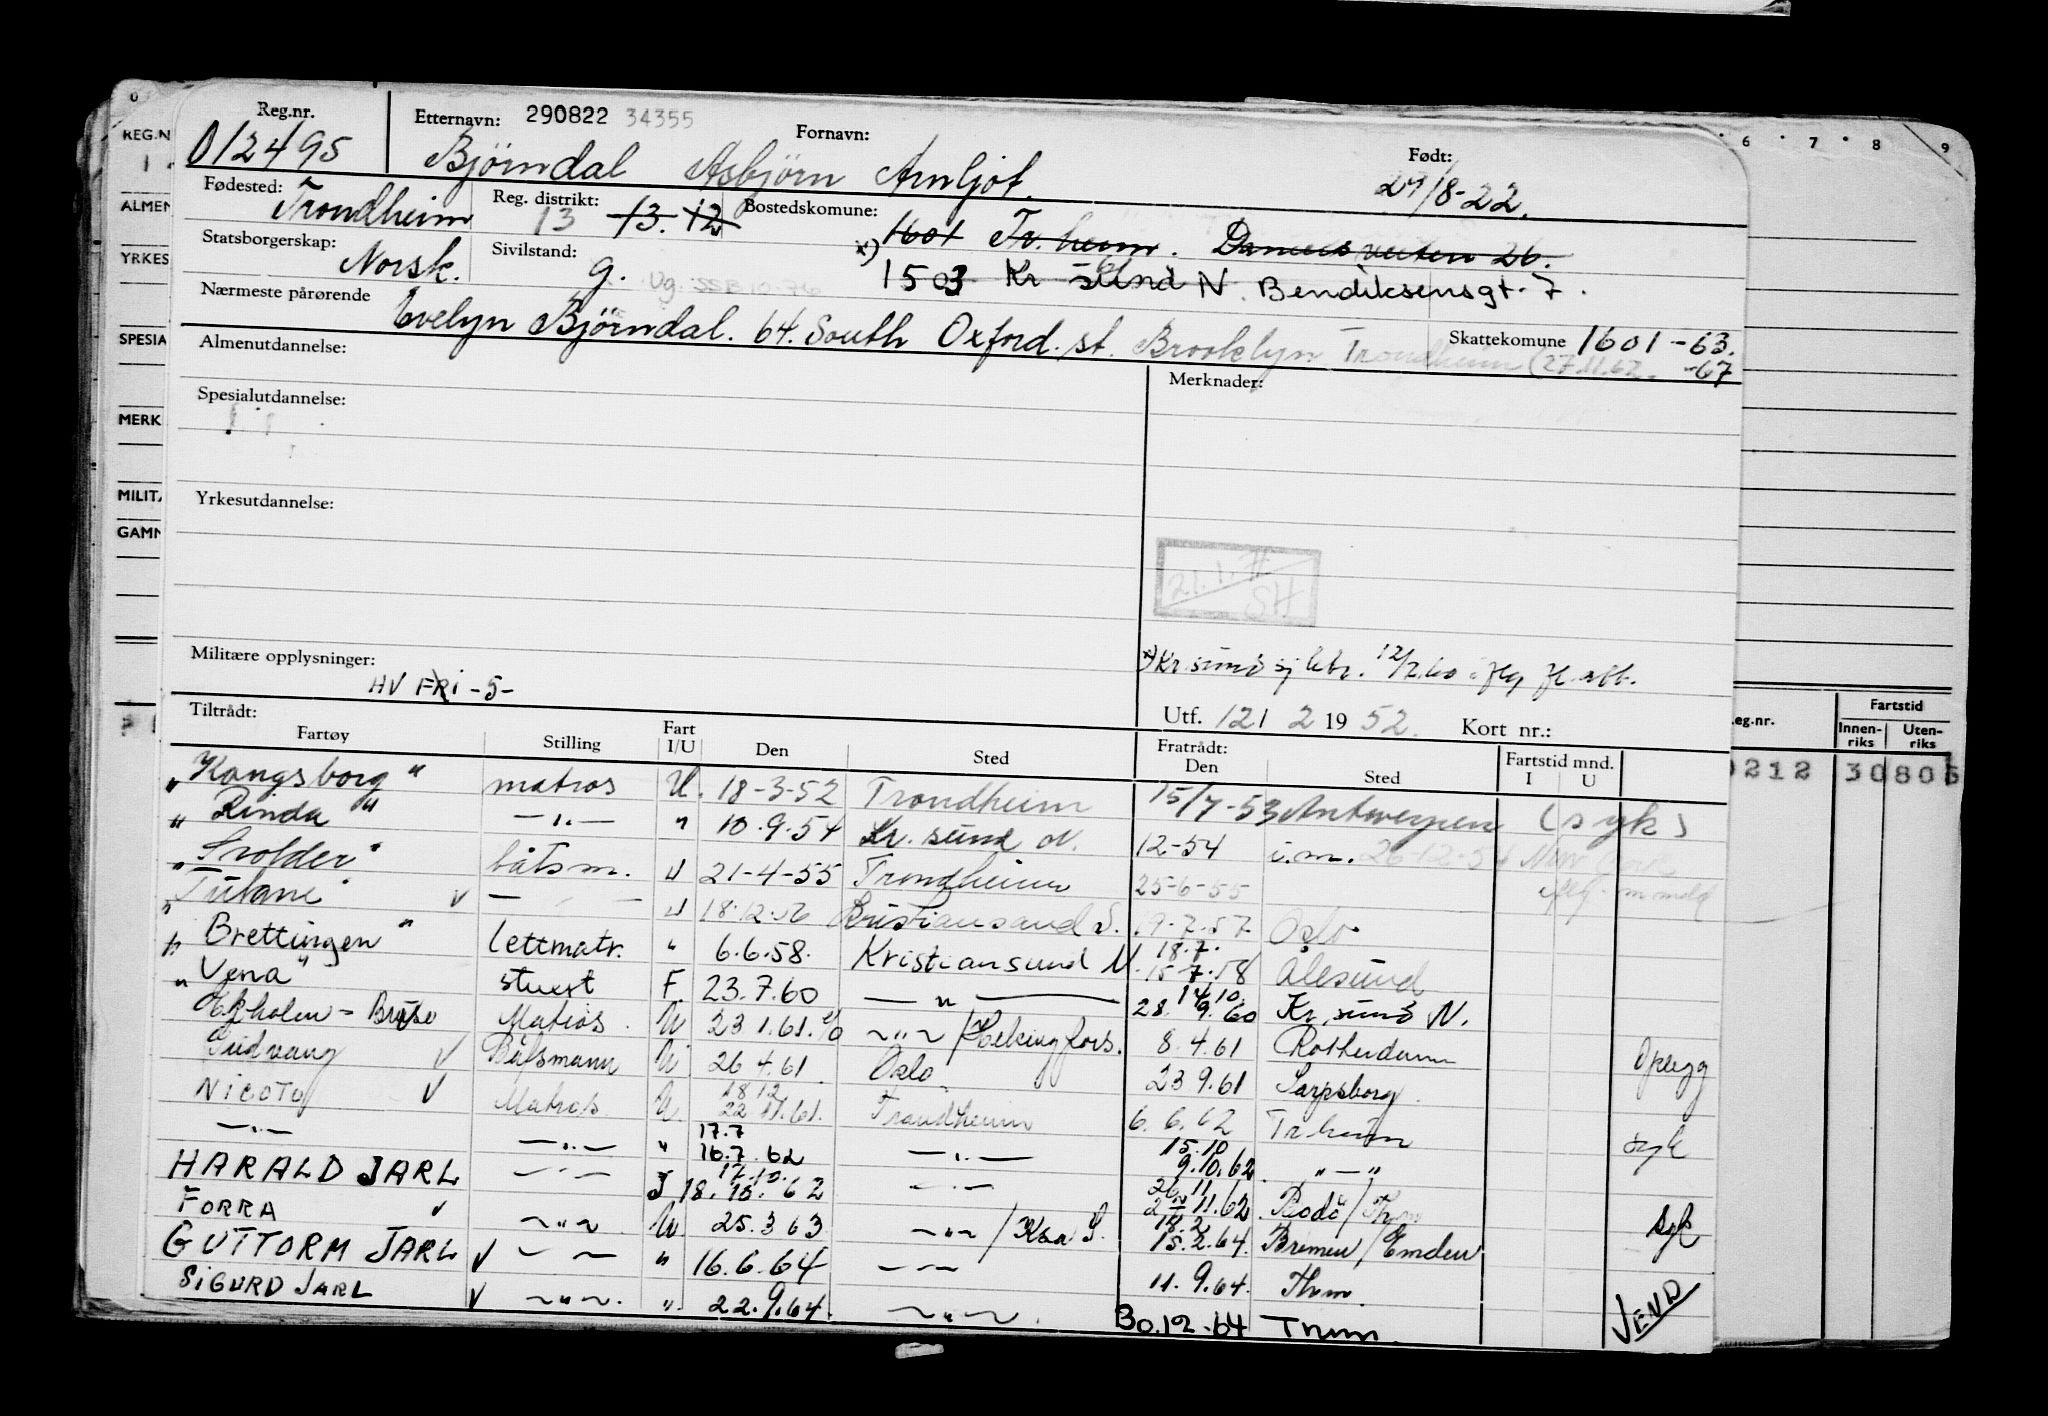 Reg.nr. Etternavn: 290822 34355 Fornavn: Født:
012495 Bjørndal Asbjørn Arnljot. 29/8-22.
Fødested: Reg. distrikt: Bostedskomune:
Trondheim 13 13. 12 1601 Tr. heim. 26.
Statsborgerskap: Sivilstand: x)
Norsk. g. Ug. SSB 10-76 1503 Kr sund N. Bendiksensgt. 7.
Nærmeste pårørende
Evelyn Bjørndal. 64. South Oxford. st. Brooklyn Trondheim (27.11.62. Skattekomune 1601-63.
-67
Almenutdannelse: Merknader:
Spesialutdannelse:
Yrkesutdannelse:
21.1.71
SH
Militære opplysninger: x) Kr. sund
HV FRI -5-
Tiltrådt: Utf. 121 2 19 52. Kort nr.:
Fartøy Stilling Fart I/U Den Sted Fratrådt: Den Sted Fartstid mnd. I U
"Kongsborg" matros U. 18-3-52 Trondheim 15/7-53 Antwerpen (syk)
"Rinda" —"— " 10.9.54 Kr. sund N. 12-54 i.m. 26-12-54 New York
"Svolder" båtsm. U 21-4-55 Trondheim 25-6-55
"Titani" v — — U 18.12.56 Kristiansand S. 19.7.57 Oslo
"Brettingen" lettmatr. " 6.6.58. Kristiansund N 18.7. 15-7.58 Ålesund
"Vena" stuert F 23.7.60 —"— 14.10. 28.9.60 Kr. sund N.
Ekholm - Bruse Matros U 23 1.61. —"— / Helsingfors. 8.4.61 Rotterdam
Sudvang v Båtsmann U 26 4.61 Oslo 23 9.61 Sarpsborg. Opplegg
NICOTO v Matros U. 18 12 22 11.61. Trondheim 6.6.62 Tr heim
—"— —"— " 17.7 16.7.62 —"— 15.10 9.10.62. "—" syk
HARALD JARL —"— I 17.10. 18.10.62 —"— 26 11 11.62. Bodö / Thm
FORRA v —"— U 25.3 63 —"— / Kra S. 18.2 15.2.64. Bremen / Emden syk
GUTTORM JARL v — — " 16.6.64 — — 11.9.64. Thm.
SIGURD JARL v —"—. " 22.9.64. —"—. 30.12-64 Trhm. VEND
REG.N
ALMEN
YRKES
SPESIA
MERK
MILITÆ
GAMM
6 7 8 9
eg.nr. Fartstid
Innen-riks Uten-riks
0212 30805